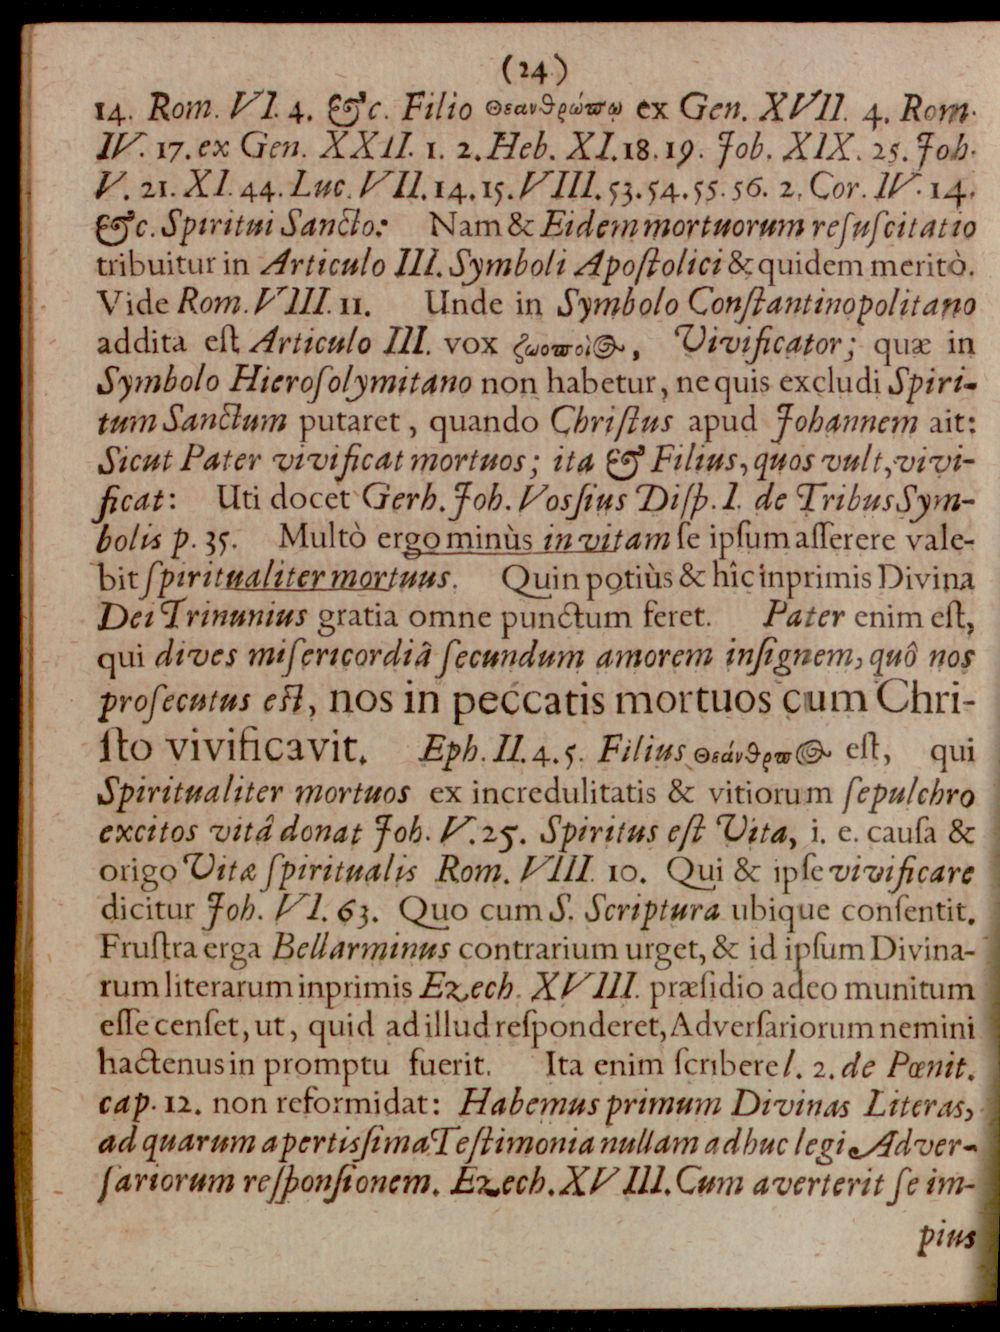 (24)
14. Rom. VI. 4. &c. Filio Θεανθρώπῳ ex Gen. XVII. 4. Rom.
IV. 17. ex Gen. XXII. 1. 2. Heb. XI. 18. 19. Job. XIX. 25. Joh.
V. 21. XI. 44. Luc. VII. 14. 15. VIII. 53. 54. 55. 56. 2. Cor. IV. 14.
&c. Spiritui Sancto: Nam & Eidem mortuorum reſuſcitatio
tribuitur in Articulo III. Symboli Apoſtolici & quidem meritò.
Vide Rom. VIII. 11. Unde in Symbolo Conſtantinopolitano
addita eſt Articulo III. vox ζωοποιὸς, Vivificator; quæ in
Symbolo Hieroſolymitano non habetur, ne quis excludi Spiri-
tum Sanctum putaret, quando Chriſtus apud Johannem ait:
Sicut Pater vivificat mortuos; ita & Filius, quos vult, vivi-
ficat: Uti docet Gerh. Joh. Voſſius Diſp. I. de Tribus Sym-
bolis p. 35. Multò ergo minùs in vitam ſe ipſum aſſerere vale-
bit ſpiritualiter mortuus. Quin potiùs & hîc inprimis Divina
Dei Trinunius gratia omne punctum feret. Pater enim eſt,
qui dives miſericordiâ ſecundum amorem inſignem, quô nos
proſecutus eſt, nos in peccatis mortuos cum Chri-
ſto vivificavit. Eph. II. 4. 5. Filius Θεάνθρωπος eſt, qui
Spiritualiter mortuos ex incredulitatis & vitiorum ſepulchro
excitos vitâ donat Joh. V. 25. Spiritus eſt Vita, i. e. cauſa &
origo Vitæ ſpiritualis Rom. VIII. 10. Qui & ipſe vivificare
dicitur Joh. VI. 63. Quo cum S. Scriptura ubique conſentit.
Fruſtra erga Bellarminus contrarium urget, & id ipſum Divina-
rum literarum inprimis Ezech. XVIII. præſidio adeo munitum
eſſe cenſet, ut, quid ad illud reſponderet, Adverſariorum nemini
hactenus in promptu fuerit. Ita enim ſcribere l. 2. de Pœnit.
cap. 12. non reformidat: Habemus primum Divinas Literas,
ad quarum apertiſſima Teſtimonia nullam adhuc legi Adver-
ſariorum reſponſionem. Ezech. XVIII. Cum averterit ſe im-
pius